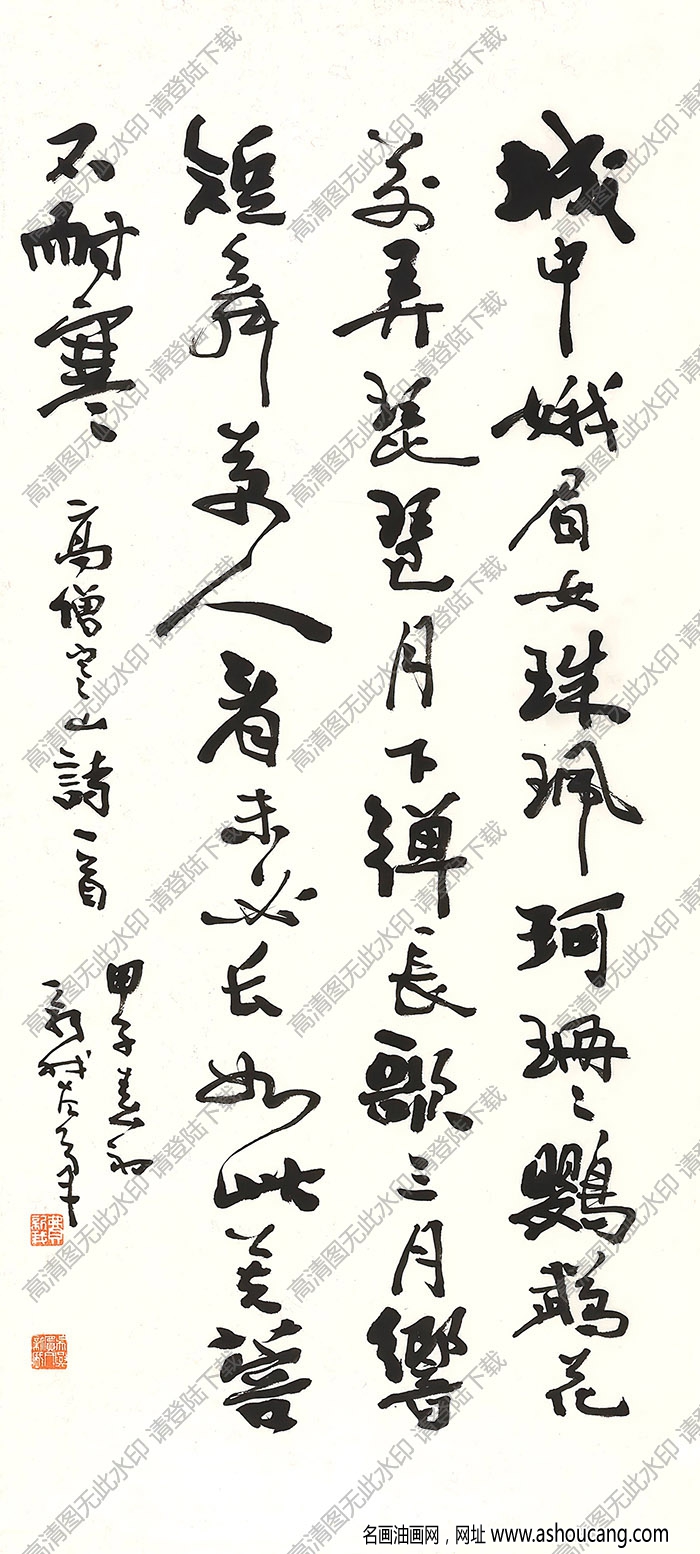 城中娥眉女珠珮珂珊〻鸚鵡花
前弄琵琶月下彈長歌三月響
短舞萬人看未必长如此芙蓉
不耐寒 高僧寒山詩一首
甲子春初
新我左筆
高清图无此水印 请登陆下载
名画油画网，网址 www.ashoucang.com